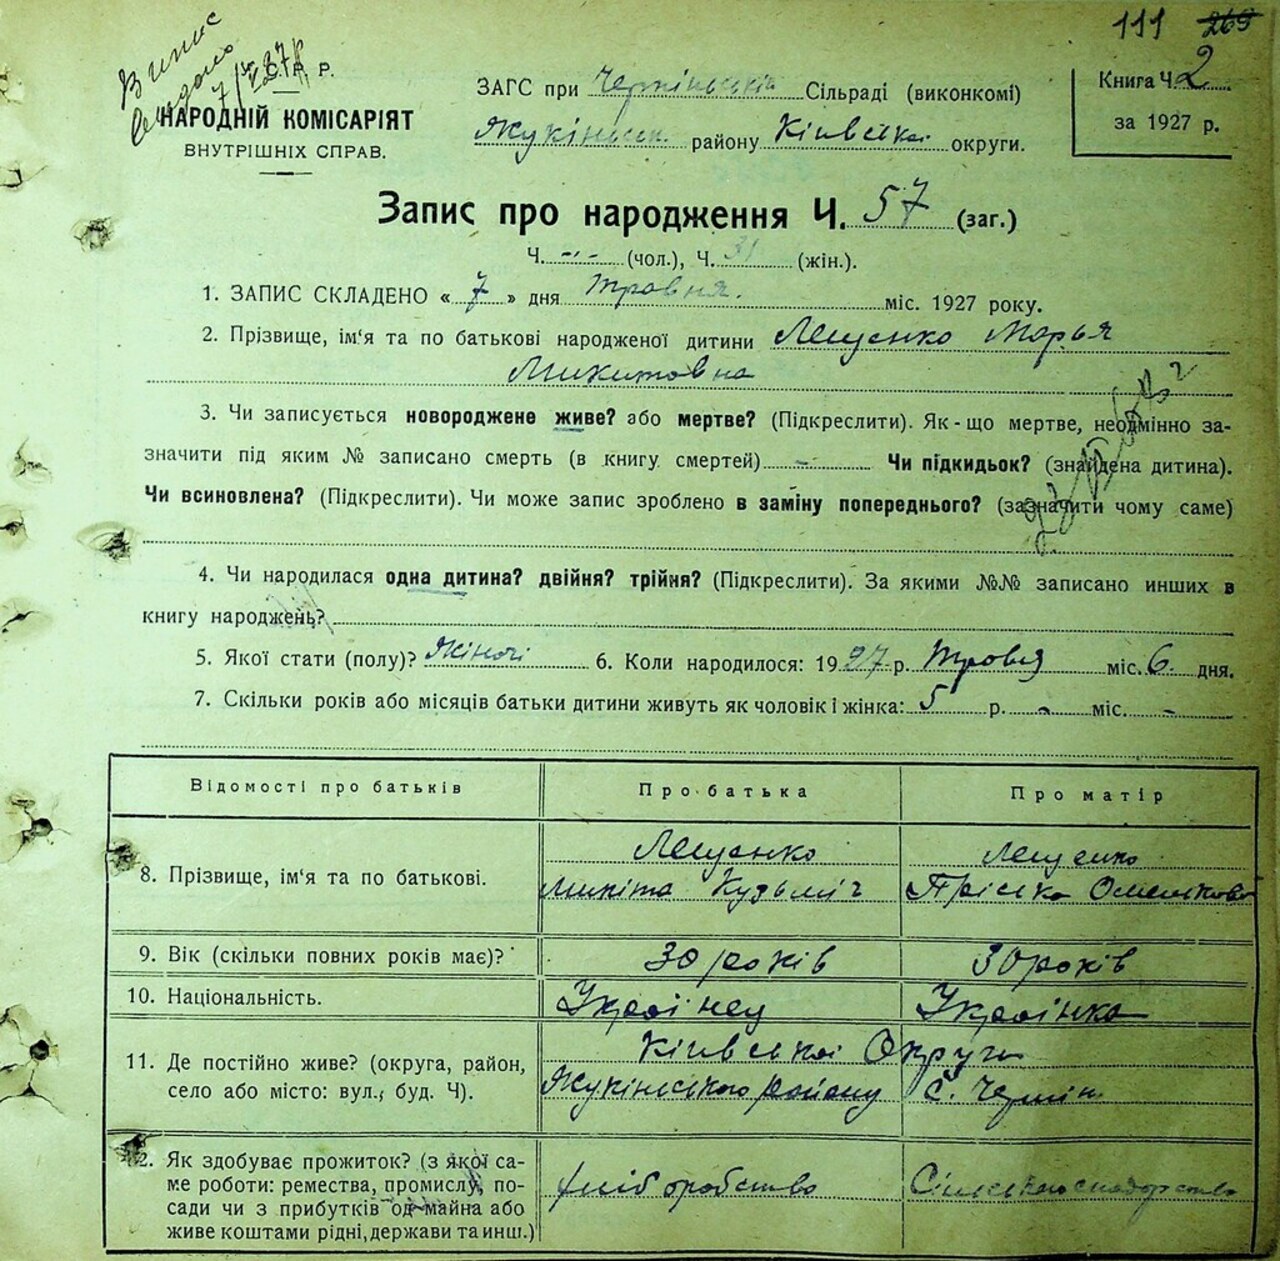 111 269
Випис
С. Р. Р.
НАРОДНІЙ КОМІСАРІЯТ
ВНУТРІШНІХ СПРАВ.
ЗАГС при Чернінській Сільраді (виконкомі)
Жукінськ. району Київської округи.
Книга Ч. 2
за 1927 р.
Запис про народження Ч. 57 (заг.)
Ч. --- (чол.), Ч. 31 (жін.).
1. ЗАПИС СКЛАДЕНО « 7 » дня Травня. міс. 1927 року.
2. Прізвище, ім‘я та по батькові народженої дитини Лещенко Марья
Микитовна
3. Чи записується новороджене живе? або мертве? (Підкреслити). Як-що мертве, неодмінно за-
значити під яким № записано смерть (в книгу смертей) - Чи підкидьок? (знайдена дитина).
Чи всиновлена? (Підкреслити). Чи може запис зроблено в заміну попереднього? (зазначити чому саме)
4. Чи народилася одна дитина? двійня? трійня? (Підкреслити). За якими №№ записано инших в
книгу народжень?
5. Якої стати (полу)? Жіночі 6. Коли народилося: 1927 р. Травня міс. 6 дня.
7. Скільки років або місяців батьки дитини живуть як чоловік і жінка: 5 р. - міс. -
Відомості про батьків Про батька Про матір
8. Прізвище, ім‘я та по батькові. Лещенко Лещенко
Микіта Кузьміч Пріська
9. Вік (скільки повних років має)? 30 років 30 років
10. Національність. Українец Українка
11. Де постійно живе? (округа, район, Київської Округи
село або місто: вул., буд. Ч). Жукінського району С. Чернін
12. Як здобуває прожиток? (з якої са-
ме роботи: ремества, промислу, по- хліборобство
сади чи з прибутків од майна або
живе коштами рідні, держави та инш.)